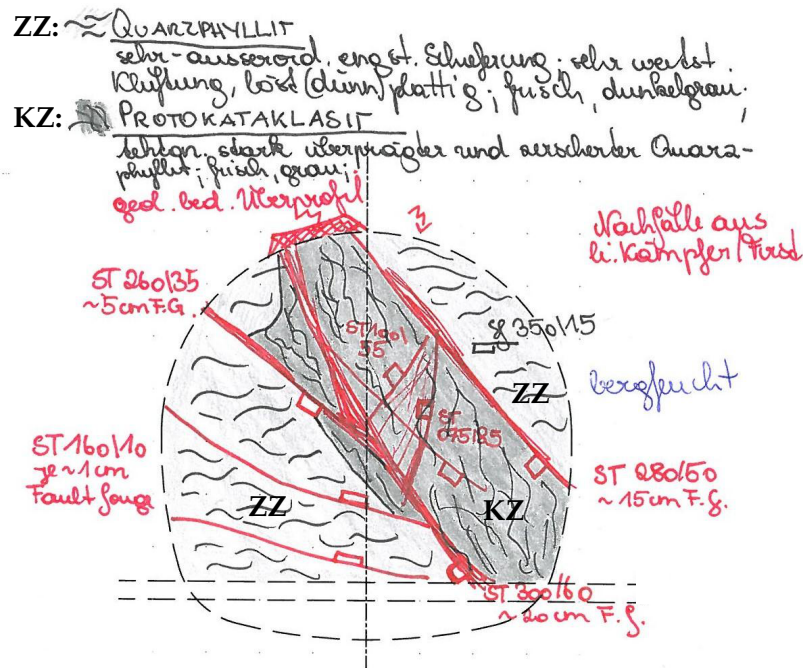 ZZ: QUARZPHYLLIT
sehr-ausserord. engst. Schieferung; sehr weitst.
Klüftung, löst (dünn)plattig; frisch, dunkelgrau;
KZ: PROTOKATAKLASIT
tekton. stark überprägter und zerscherter Quarz-
phyllit; frisch, grau;
geol. bed. Überprofil
Nachfälle aus
li. Kämpfer/First
ST 260/35
~5cm F.G.
sf 350/15
ST 190/
55
ZZ
bergfeucht
ST
075/85
ST 160/10
je ~1cm
Fault Gouge
ST 280/50
~15cm F.G.
ZZ
KZ
ST 300/60
~20cm F.G.